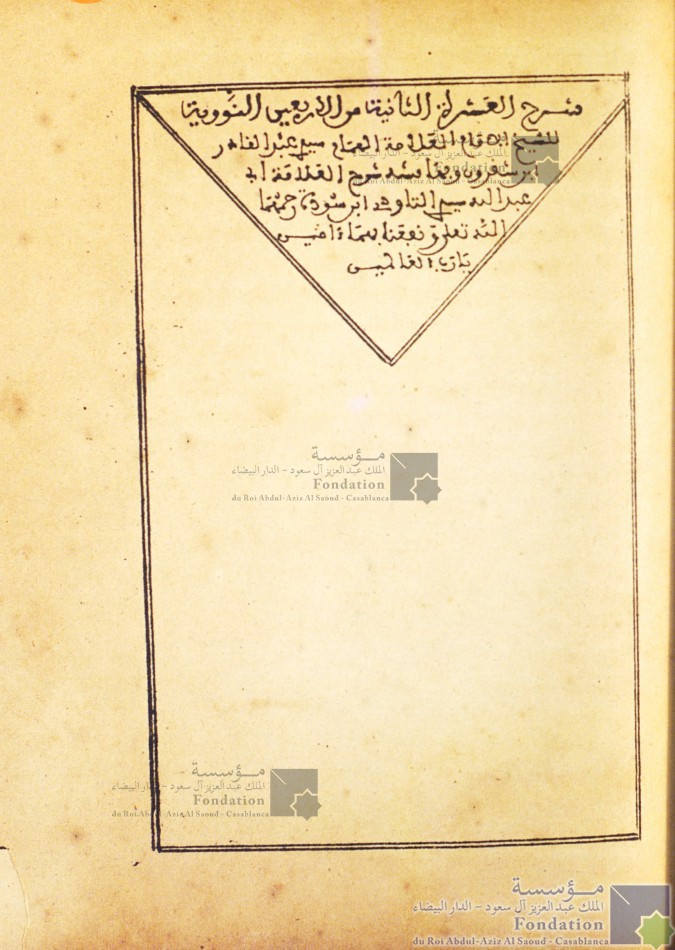 شرح العشرة الثانية من الاربعين النووية
للشيخ الامام العلامة الهمام سيدي عبد القادر
ابن شقرون وبعا بشد شرح العلامة ابي
عبد الله سيدي التاودي ابن سودة رحمهما
الله تعلى ونفعنا بهما ءاميـن
يا رب العالميـن
مؤسسة
الملك عبد العزيز آل سعود - الدار البيضاء
Fondation
du Roi Abdul-Aziz Al Saoud - Casablanca
مؤسسة
الملك عبد العزيز آل سعود - الدار البيضاء
Fondation
du Roi Abdul-Aziz Al Saoud - Casablanca
مؤسسة
الملك عبد العزيز آل سعود - الدار البيضاء
Fondation
du Roi Abdul-Aziz Al Saoud - Casablanca